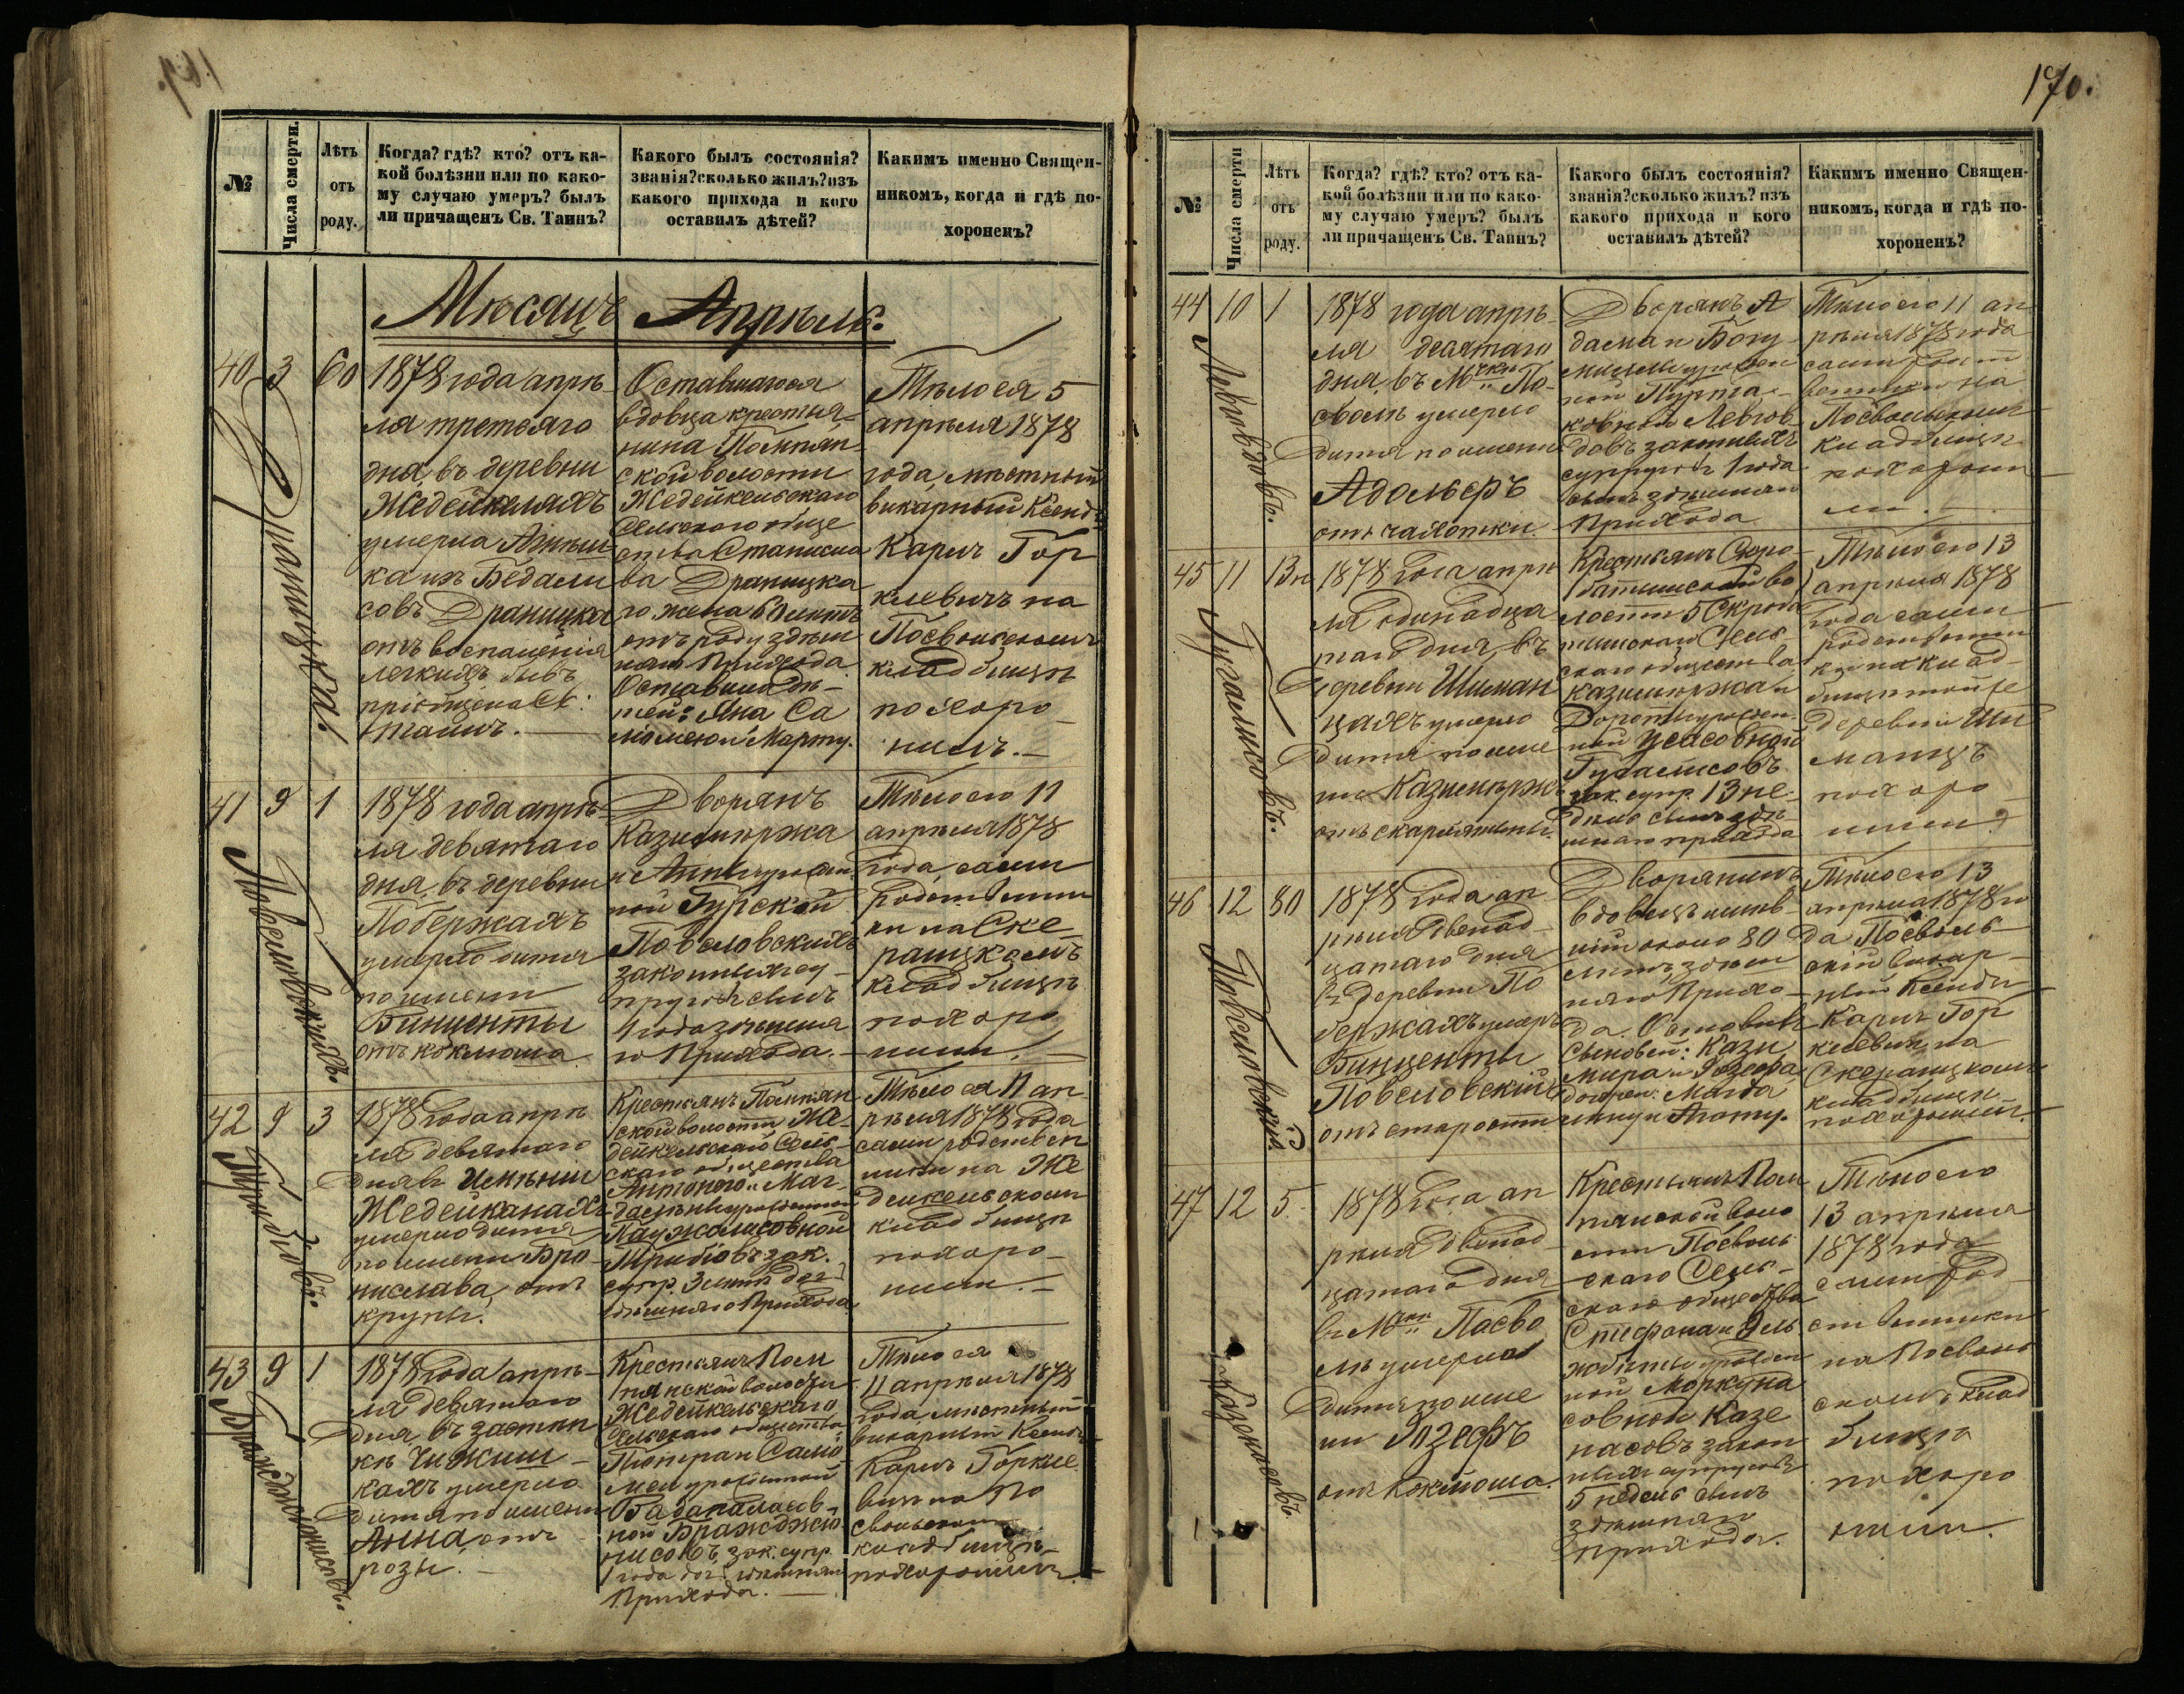 169.
№
Числа смерти.
Лѣтъ
отъ
роду.
Когда? гдѣ? кто? отъ ка-
кой болѣзни или по како-
му случаю умеръ? былъ
ли причащенъ Св. Таинъ?
Какого былъ состоянія?
званія? сколько жилъ? изъ
какого прихода и кого
оставилъ дѣтей?
Какимъ именно Священ-
никомъ, когда и гдѣ по-
хороненъ?
Мѣсяцъ Апрѣль.
40 3 60
Драницка.
1878 года апрѣ-
ля третьяго
дня, въ деревни
Жедейкеляхъ
умерла
изъ Бедали
совъ Драницка
отъ воспаленія
легкихъ бывъ
пріобщена Св.
Таинъ.
Оставшагося
вдовца крестья-
нина Помпян-
ской волости
Жедейкельскаго
Сельскаго обще
ства Станисла
ва Драницка
го жена 60 лѣтъ
отъ роду здѣш
няго Прихода.
Оставила дѣ-
тей: Яна Са
ломею и Марту.
Тѣло ея 5
апрѣля 1878
года, мѣстный
викарный Ксендзъ
Карлъ Гор
кевичъ на
Посвольскомъ
кладбищѣ
похоро-
нилъ.
41 9 1
Повсиловскихъ.
1878 года апрѣ-
ля девятаго
дня, въ деревни
Побержахъ
умерло дитя
по имени
Винценты
отъ коклюша
Дворянъ
Казимиржа
и Анны урожден
ной Гурской
Повсиловскихъ
законныхъ су-
пруговъ сынъ
1 года здѣшня
го Прихода.
Тѣло его 11
апрѣля 1878
года, сами
родственни
ки на Ске
рашцкомъ
кладбищѣ
похоро
нили.
42 9 3
1878 года апрѣ
ля девятаго
дня въ имѣніи
Жедейканахъ
умерло дитя
по имени Бро-
нислава, отъ
крупы.
Крестьянъ Помпян
ской волости Же-
дейкельскаго Сель-
скаго общества
Антонаго и Маг-
далены урожденной
зак.
супр. 3 лѣтъ доч.
здѣшняго Прихода
Тѣло ея 11 ап
рѣля 1878 года
сами родствен
ники на Же
дейкельскомъ
кладбищѣ
похоро-
нили.
43 9 1
1878 года апрѣ-
ля девятаго
дня, въ застѣн
кѣ Чижиш-
кахъ умерло
дитя по имени
Анна, отъ
розы.
Крестьянъ Пом
пянской волости
Жедейкельскаго
Сельскаго общества
Сало-
меи урожденной
ной Браждже
нисовъ, зак. супр.
1 года доч. здѣшняго
Прихода.
Тѣло ея
11 апрѣля 1878
года, мѣстный
викарный Ксендзъ
Карлъ Горкие
вичъ на По
свольскомъ
кладбищѣ
похоронилъ.
170.
№
Числа смерти
Лѣтъ
отъ
роду.
Когда? гдѣ? кто? отъ ка-
кой болѣзни или по како-
му случаю умеръ? былъ
ли причащенъ Св. Таинъ?
Какого былъ состоянія?
званія? сколько жилъ? изъ
какого прихода и кого
оставилъ дѣтей?
Какимъ именно Священ-
никомъ, когда и гдѣ по-
хороненъ?
44 10 1
1878 года апрѣ-
ля десятаго
дня, въ Мчки По-
сволѣ умерло
дитя по имени
Адольфъ
отъ чахотки.
Дворянъ А
дама и Богу-
милы урожден
ной
законныхъ
супруговъ 1 года
сынъ здѣшняго
Прихода
Тѣло его 11 ап
рѣля 1878 года
сами родст
венники на
Посвольскомъ
кладбищѣ
похорони
ли.
45 11 13 н
Гугалисовъ.
1878 года апрѣ
ля одинадца
таго дня, въ
деревни Шиман
цахъ умерло
дитя по име
ни Казимиржъ
отъ скарлятины.
Крестьянъ Скро-
батишской во
лости
Сель-
скаго общества
Казимиржа и
Дороты урожден
ной
Гугалисовъ
зак. супр. 13 не-
дѣль сынъ здѣ-
шняго прихода
Тѣло его 13
апрѣля 1878
года сами
родственни
ки на клад-
бищѣ той же
деревни Ши
манцъ
похоро
нили.
46 12 80
Повсиловскій.
1878 года ап
рѣля двенад-
цатаго дня
въ деревни По
бержахъ умеръ
Винценты
Повсиловскій
отъ старости
Дворянинъ
вдовецъ имѣв-
шій около 80
лѣтъ здѣш
няго Прихо-
да. Оставилъ
Сыновей: Кази
мира и Іозефа
дочерей: Магда
лину и Агату.
Тѣло его 13
апрѣля 1878 го
да Посволь-
скій викар-
ный Ксендзъ
Карлъ Гор
кевичъ на
Скерашцкомъ
кладбищѣ
похоронилъ.
47 12 5
Казенасовъ
1878 года ап
рѣля двенад-
цатаго дня
въ Мчки Посво
лѣ умерло
дитя по име
ни Іозефъ
отъ коклюша.
Крестьянъ Пом
пянской воло
сти Посволь
скаго Сель-
скаго общества
Стефана и Эль
жбеты урожден
ной Моркуна
совной Казе
насовъ закон
ныхъ супруговъ
5 недѣль сынъ
здѣшняго
Прихода.
Тѣло его
13 апрѣля
1878 года
сами род-
ственники
на Посволь
скомъ клад
бищѣ
похоро
нили.